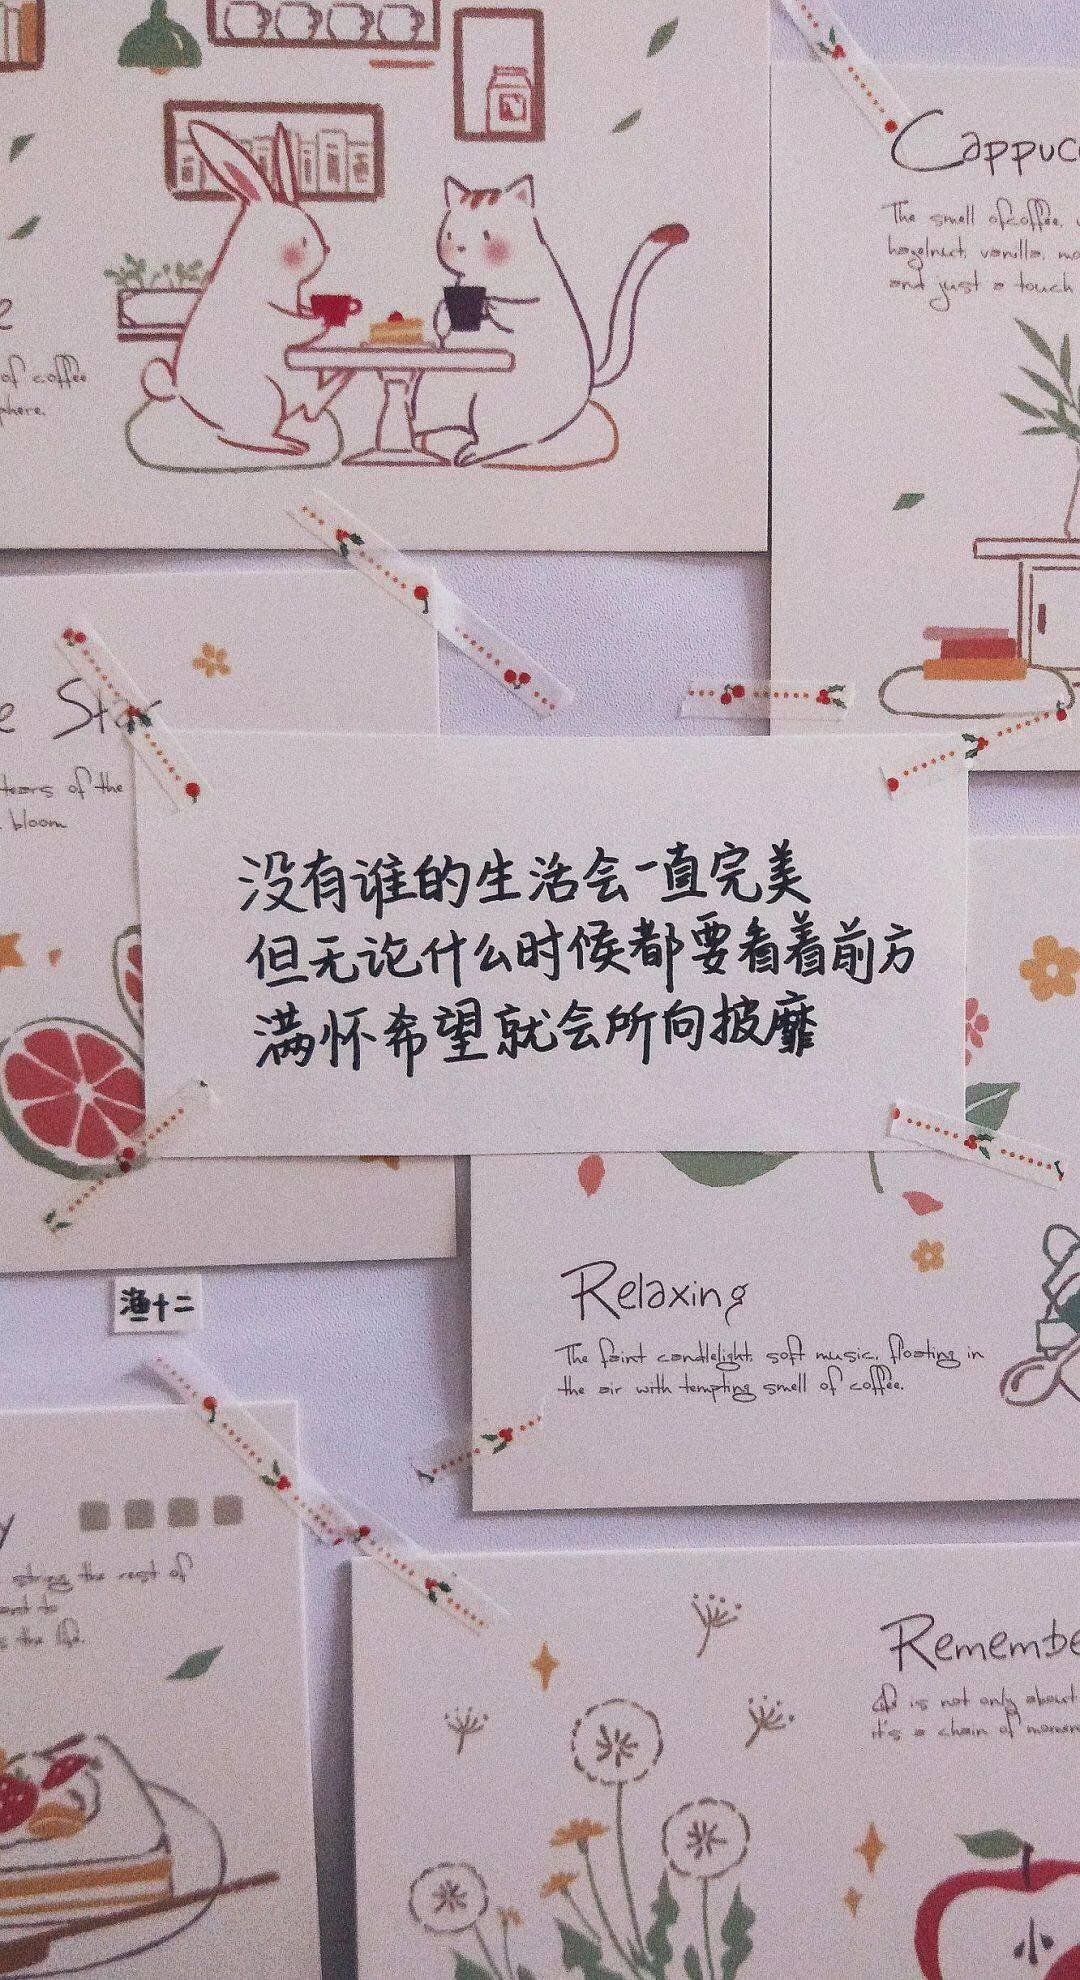 Cappuc
The smell ofcoffee,
hazelnut, vanilla, mo
and just a touch
of coffee
phere.
e Star
tears of the
bloom
没有谁的生活会一直完美
但无论什么时候都要看着前方
满怀希望就会所向披靡
Relaxing
The faint candlelight, soft music, floating in
the air with tempting smell of coffee.
渔十二
y
string the rest of
ant to
s the life.
Remembe
is not only about
it's a chain of momen